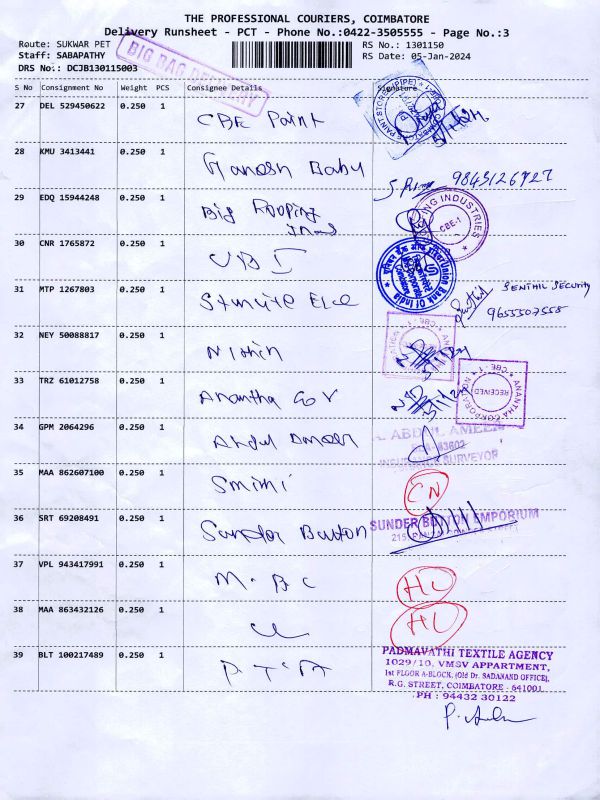 THE PROFESSIONAL COURIERS, COIMBATORE
Delivery Runsheet - PCT - Phone No.:0422-3505555 - Page No.:3
Route: SUKWAR PET
RS No.: 1301150
Staff: SABAPATHY
RS Date: 05-Jan-2024
DRS No.: DCJB130115003
BIG BAG DELIVERY
S No Consignment No Weight PCS Consignee Details Signature
27 DEL 529450622 0.250 1 CBE Paint
28 KMU 3413441 0.250 1 Ganesh Babu
9843126727
29 EDQ 15944248 0.250 1 Big Roofing
ING INDUSTRIES
CBE-1
30 CNR 1765872 0.250 1 UBI
Union Bank Of India
31 MTP 1267803 0.250 1
SENTHIL SECURITY
9655507558
32 NEY 50088817 0.250 1 Nithin
33 TRZ 61012758 0.250 1 Anantha Cor
ANANTHA CORPORATION
CBE - 1
RECEIVED
34 GPM 2064296 0.250 1 Abdul Ameen
ABDUL AMEEN
INSURANCE SURVEYOR
35 MAA 862607100 0.250 1 Smimi
CN
36 SRT 69208491 0.250 1 Sundar Button
SUNDER BUTTON EMPORIUM
37 VPL 943417991 0.250 1 M.B.C
HU
38 MAA 863432126 0.250 1
HU
39 BLT 100217489 0.250 1 P.T.A
PADMAVATHI TEXTILE AGENCY
1029/10, VMSV APPARTMENT,
1st FLOOR A-BLOCK, (Old Dr. SADANAND OFFICE),
R.G. STREET, COIMBATORE - 641001
PH : 94432 30122